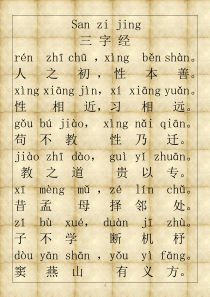 San zi jing
三字经
rén zhī chū ，xìng běn shàn。
人之初，性本善。
xìng xiāng jìn，xí xiāng yuǎn。
性相近，习相远。
gǒu bú jiào，xìng nǎi qiān。
苟不教 性乃迁。
jiào zhī dào，guì yǐ zhuān。
教之道 贵以专。
xī mèng mǔ ，zé lín chǔ。
昔孟母 择邻处。
zǐ bù xué，duàn jī zhù。
子不学 断机杼
dòu yān shān ，yǒu yì fāng。
窦燕山 有义方。